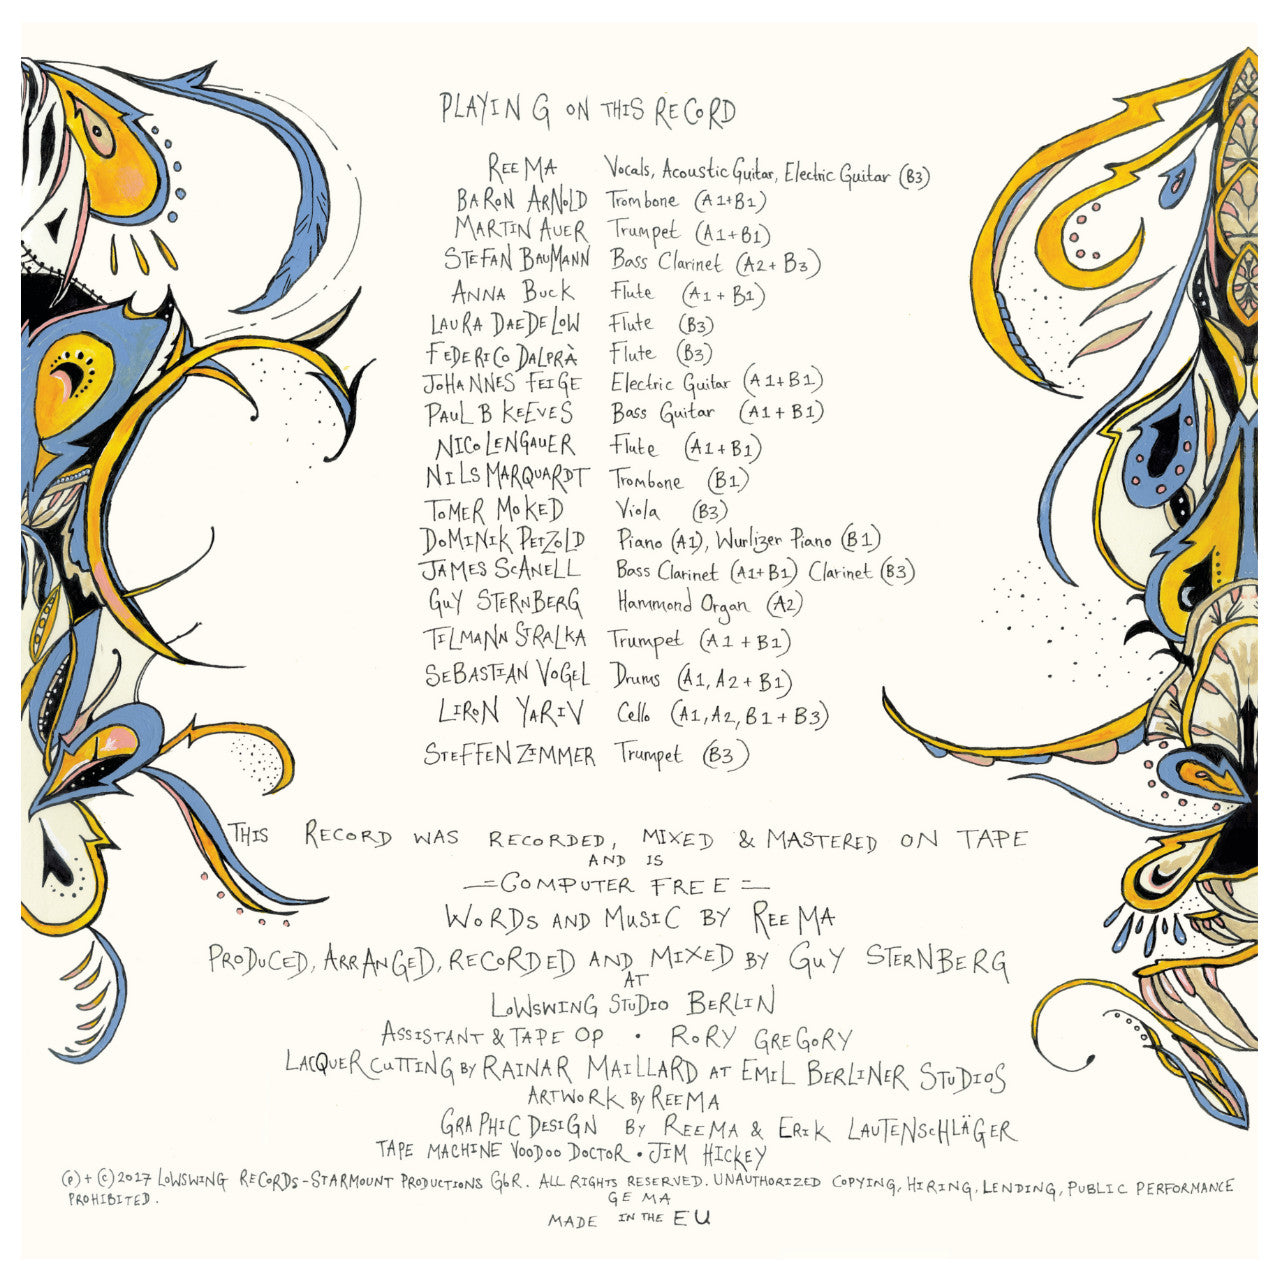 PLAYING ON THIS RECORD
REE MA Vocals, Acoustic Guitar, Electric Guitar (B3)
BARON ARNOLD Trombone (A1+B1)
MARTIN AUER Trumpet (A1+B1)
STEFAN BAUMANN Bass Clarinet (A2+B3)
ANNA BUCK Flute (A1+B1)
LAURA DAEDELOW Flute (B3)
FEDERICO DALPRÀ Flute (B3)
JOHANNES FEIGE Electric Guitar (A1+B1)
PAUL B KEEVES Bass Guitar (A1+B1)
NICO LENGAUER Flute (A1+B1)
NILS MARQUARDT Trombone (B1)
TOMER MOKED Viola (B3)
DOMINIK PETZOLD Piano (A1), Wurlizer Piano (B1)
JAMES SCANELL Bass Clarinet (A1+B1) Clarinet (B3)
GUY STERNBERG Hammond Organ (A2)
TILMANN STRALKA Trumpet (A1+B1)
SEBASTIAN VOGEL Drums (A1, A2+B1)
LIRON YARIV Cello (A1, A2, B1+B3)
STEFFEN ZIMMER Trumpet (B3)
THIS RECORD WAS RECORDED, MIXED & MASTERED ON TAPE
AND IS
=COMPUTER FREE=
WORDS AND MUSIC BY REE MA
PRODUCED, ARRANGED, RECORDED AND MIXED BY GUY STERNBERG
AT
LOWSWING STUDIO BERLIN
ASSISTANT & TAPE OP • RORY GREGORY
LACQUER CUTTING BY RAINAR MAILLARD AT EMIL BERLINER STUDIOS
ARTWORK BY REEMA
GRAPHIC DESIGN BY REEMA & ERIK LAUTENSCHLÄGER
TAPE MACHINE VOODOO DOCTOR • JIM HICKEY
(P)+(C) 2017 LOWSWING RECORDS-STARMOUNT PRODUCTIONS GbR. ALL RIGHTS RESERVED. UNAUTHORIZED COPYING, HIRING, LENDING, PUBLIC PERFORMANCE
PROHIBITED.
GEMA
MADE IN THE EU